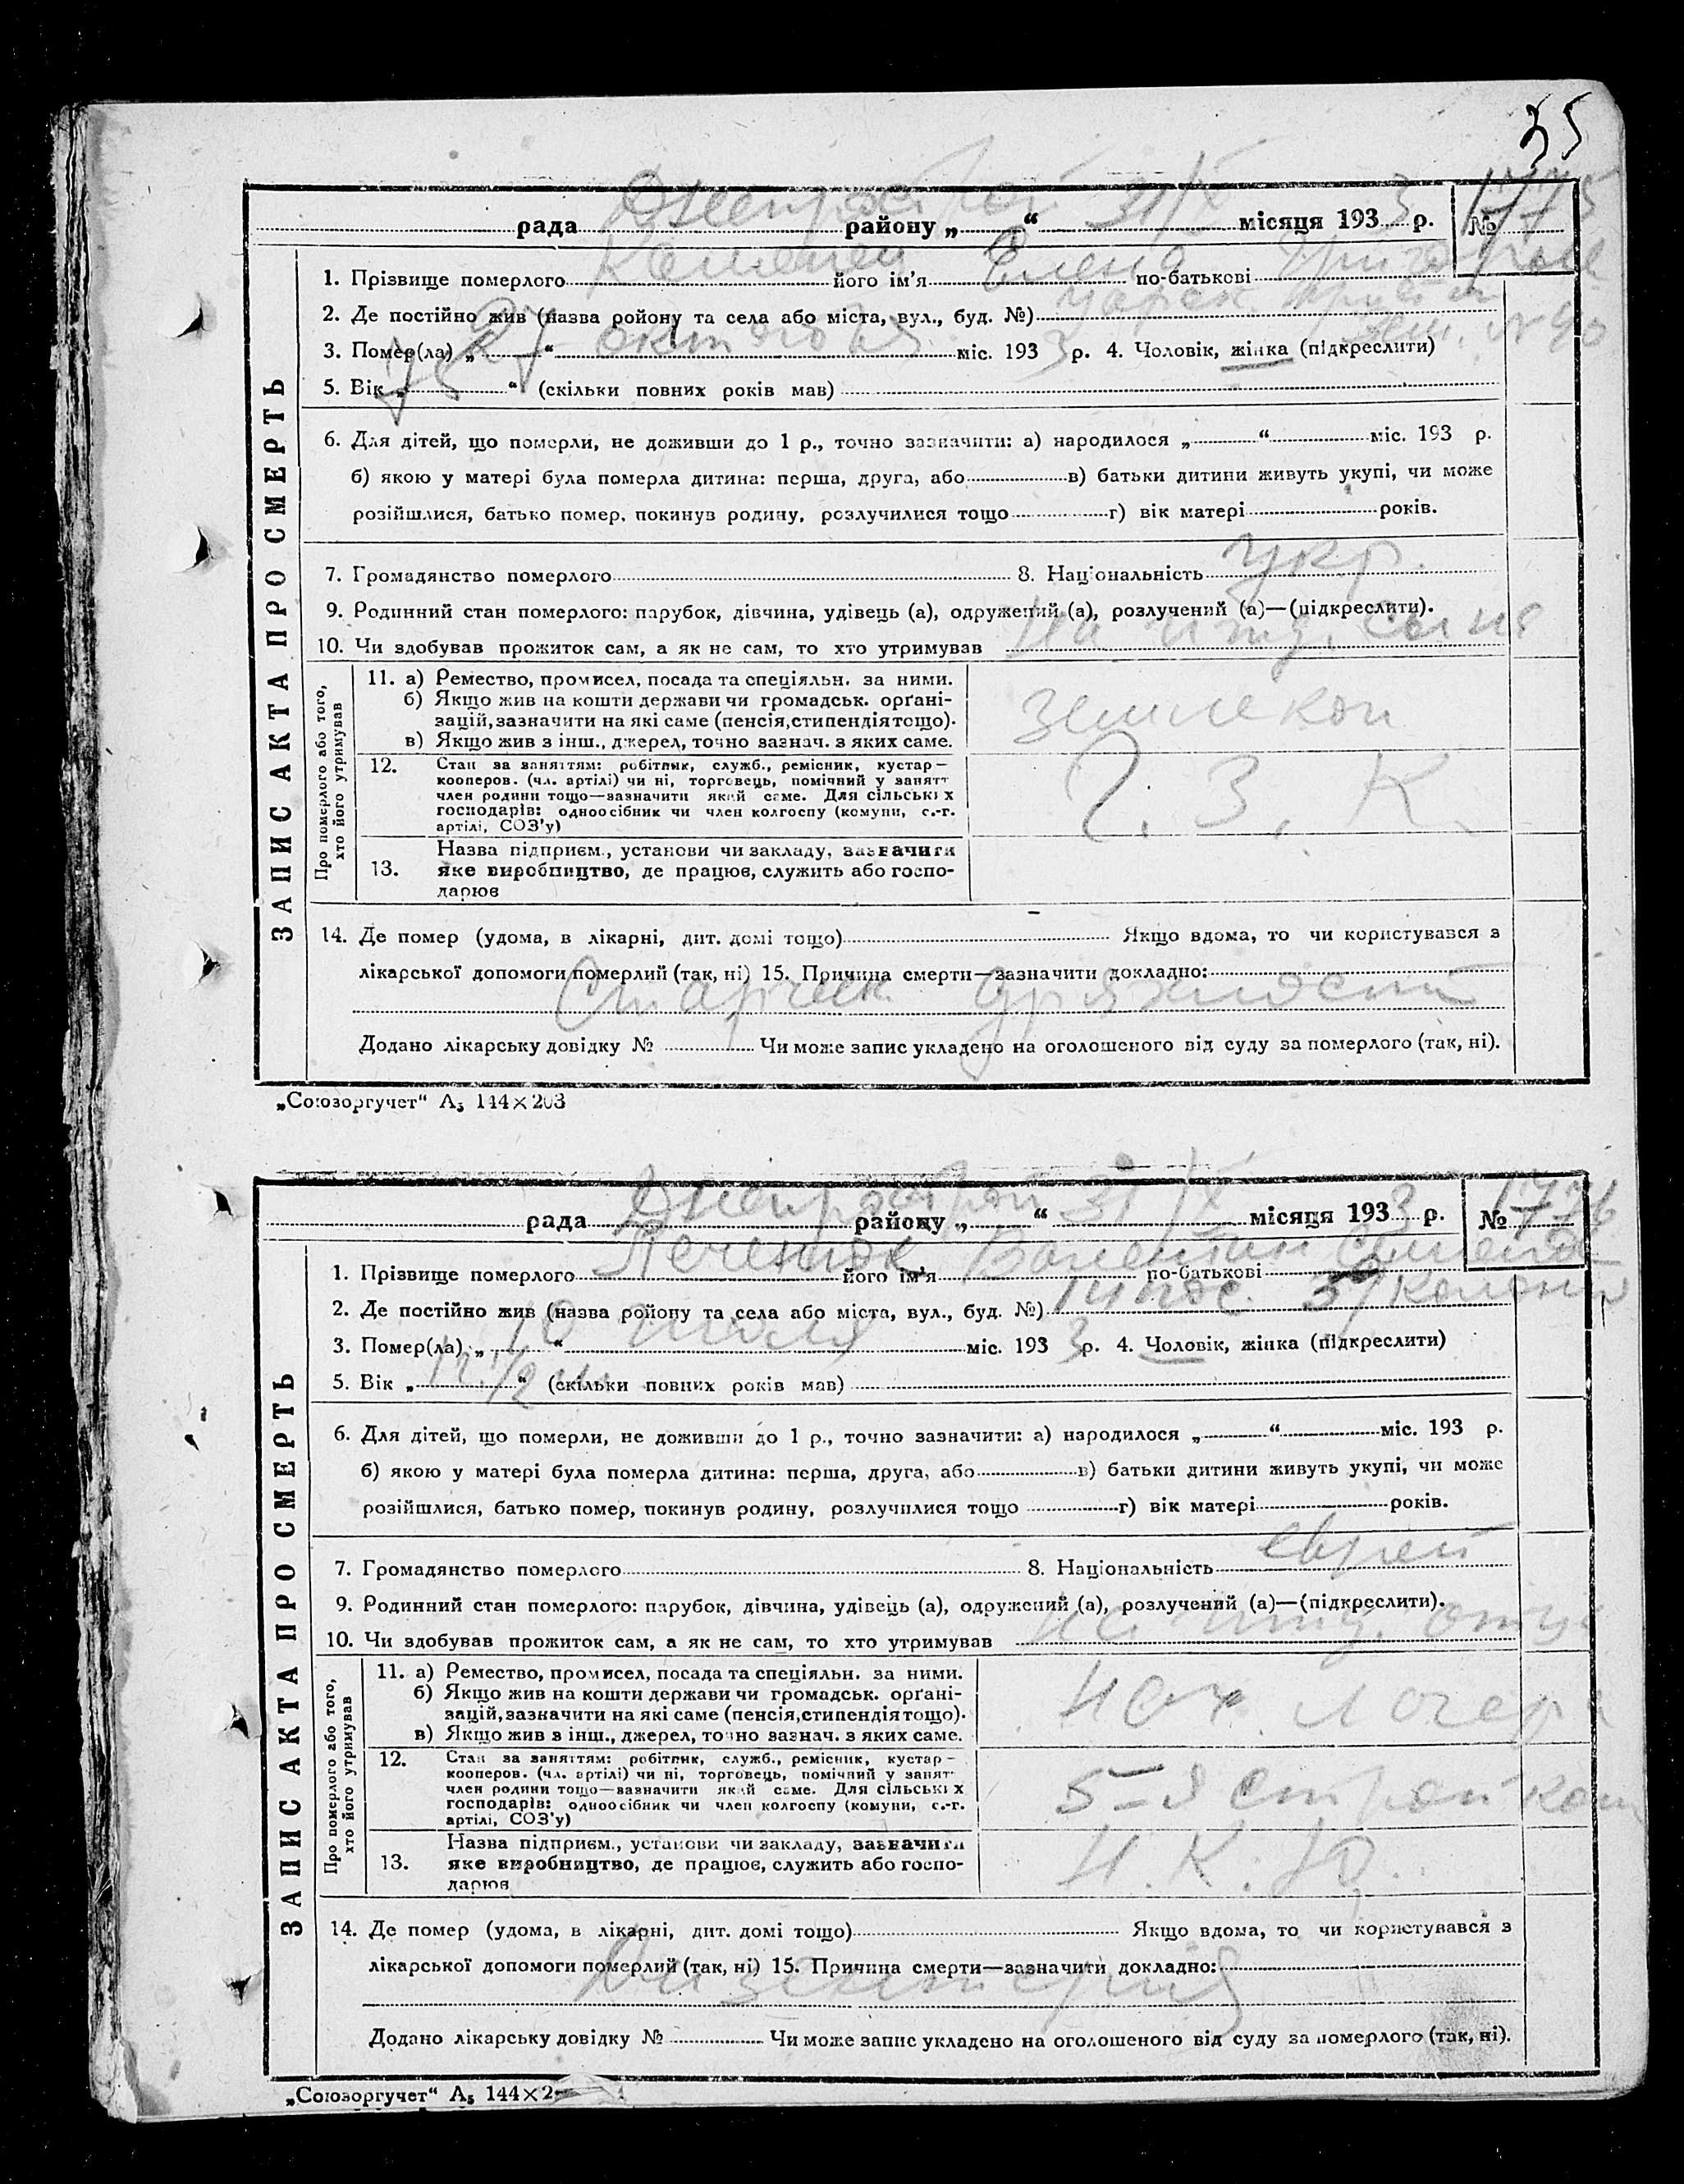 35
Днепрострой 31/X 3 1775
рада району „ “ місяця 193 р. №
1. Прізвище померлого Каменец його ім’я Елена по-батькові
2. Де постійно жив (назва району та села або міста, вул., буд. №)
3. Помер(ла) „ 27 “ октября міс. 193 3 р. 4. Чоловік, жінка (підкреслити) № 90
5. Вік „ 75 “ (скільки повних років мав)
6. Для дітей, що померли, не доживши до 1 р., точно зазначити: а) народилося „ “ міс. 193 р.
б) якою у матері була померла дитина: перша, друга, або в) батьки дитини живуть укупі, чи може
розійшлися, батько помер, покинув родину, розлучилися тощо г) вік матері років.
7. Громадянство померлого 8. Національність укр.
9. Родинний стан померлого: парубок, дівчина, удівець (а), одружений (а), розлучений (а)—(підкреслити).
10. Чи здобував прожиток сам, а як не сам, то хто утримував на ижд. сына
ЗАПИС АКТА ПРО СМЕРТЬ
Про померлого або того, хто його утримував
11. а) Ремество, промисел, посада та спеціяльн. за ними.
б) Якщо жив на кошти держави чи громадськ. орґані-
зацій, зазначити на які саме (пенсія, стипендія тощо).
в) Якщо жив з інш., джерел, точно зазнач. з яких саме.
землекоп
12. Стан за заняттям: робітник, служб., ремісник, кустар—
кооперов. (чл. артілі) чи ні, торговець, помічний у занятт
член родини тощо—зазначити який саме. Для сільських
господарів: одноосібник чи член колгоспу (комуни, с.-г.
артілі, СОЗ’у)
З. К.
13. Назва підприєм., установи чи закладу, зазначити
яке виробництво, де працює, служить або госпо-
дарює
14. Де помер (удома, в лікарні, дит. домі тощо) Якщо вдома, то чи користувався з
лікарської допомоги померлий (так, ні) 15. Причина смерти—зазначити докладно:
Старческ дряхлость
Додано лікарську довідку № Чи може запис укладено на оголошеного від суду за померлого (так, ні).
„Союзоргучет“ А5 144×203
Днепрострой 31/X 3 1776
рада району „ “ місяця 193 р. №
1. Прізвище померлого Печенюк його ім’я Валентин по-батькові
2. Де постійно жив (назва району та села або міста, вул., буд. №) 14 пос. 37 колона
3. Помер(ла) „ 10 “ июля міс. 193 3 р. 4. Чоловік, жінка (підкреслити)
5. Вік „ 1/2 “ (скільки повних років мав)
6. Для дітей, що померли, не доживши до 1 р., точно зазначити: а) народилося „ “ міс. 193 р.
б) якою у матері була померла дитина: перша, друга, або в) батьки дитини живуть укупі, чи може
розійшлися, батько помер, покинув родину, розлучилися тощо г) вік матері років.
7. Громадянство померлого 8. Національність еврей
9. Родинний стан померлого: парубок, дівчина, удівець (а), одружений (а), розлучений (а)—(підкреслити).
10. Чи здобував прожиток сам, а як не сам, то хто утримував на ижд. отца
ЗАПИС АКТА ПРО СМЕРТЬ
Про померлого або того, хто його утримував
11. а) Ремество, промисел, посада та спеціяльн. за ними.
б) Якщо жив на кошти держави чи громадськ. орґані-
зацій, зазначити на які саме (пенсія, стипендія тощо).
в) Якщо жив з інш., джерел, точно зазнач. з яких саме.
нач. лагеря
12. Стан за заняттям: робітник, служб., ремісник, кустар—
кооперов. (чл. артілі) чи ні, торговець, помічний у занят
член родини тощо—зазначити який саме. Для сільських
господарів: одноосібник чи член колгоспу (комуни, с.-г.
артілі, СОЗ’у)
5-й строй кол
13. Назва підприєм., установи чи закладу, зазначити
яке виробництво, де працює, служить або госпо-
дарює
Н. К. Ю.
14. Де помер (удома, в лікарні, дит. домі тощо) Якщо вдома, то чи користувався з
лікарської допомоги померлий (так, ні) 15. Причина смерти—зазначити докладно:
Дизентерия
Додано лікарську довідку № Чи може запис укладено на оголошеного від суду за померлого (так, ні).
„Союзоргучет“ А5 144×2